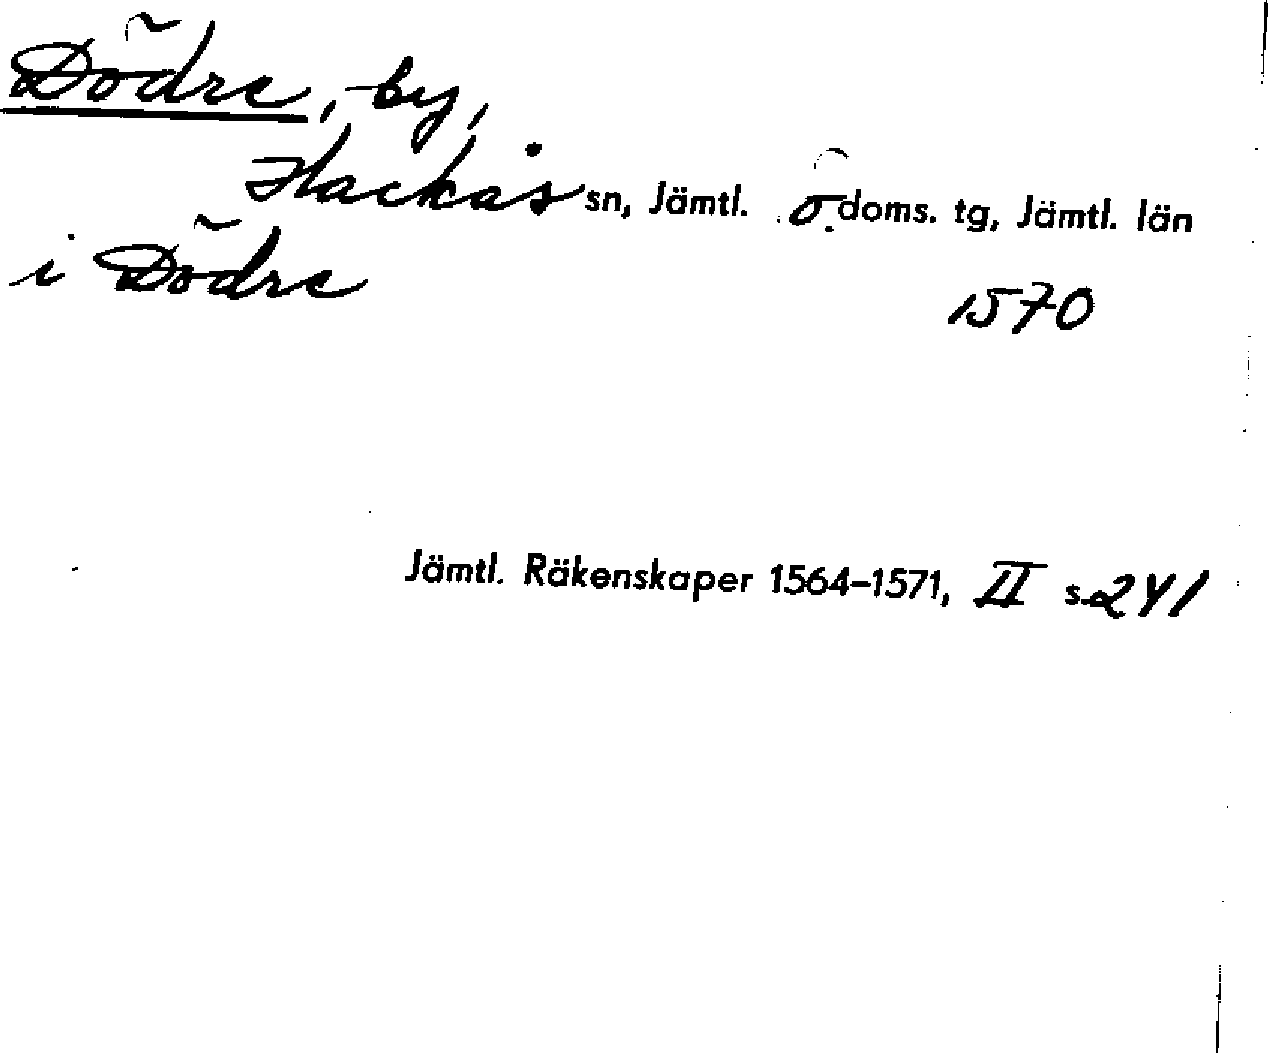 Dödre, by,
Hackås sn, Jämtl. ö. doms. tg, Jämtl. län
i Dödre
1570
Jämtl. Räkenskaper 1564–1571, II s. 241